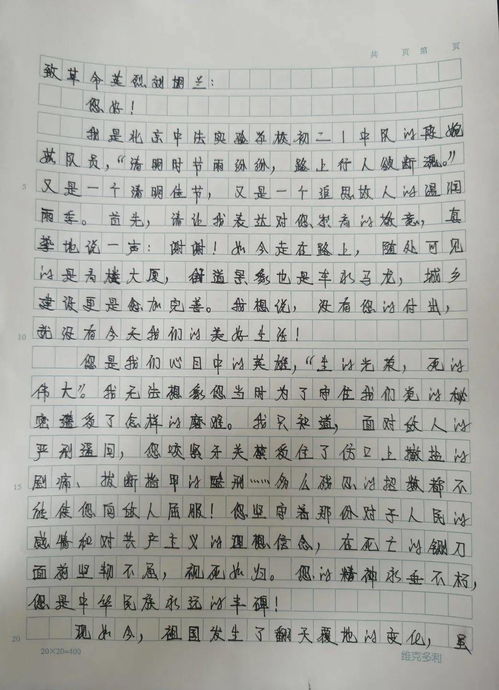 共 页 第 页
致革命英烈刘胡兰：
您好！
我是北京中法实验学校初二1中队的段婉
队员，“清明时节雨纷纷，路上行人欲断魂。”
5
又是一个清明佳节，又是一个追思故人的湿润
雨季。首先，请让我表达对您执着的敬意，真
挚地说一声：谢谢！如今走在路上，随处可见
的是高楼大厦，街道景象也是车水马龙，城乡
建设更是愈加完善。我想说，没有您的付出，
10
就没有今天我们的美好生活！
您是我们心目中的英雄，“生的光荣，死的
伟大”。我无法想象您当时为了守住我们党的秘
密遭受了怎样的磨难。我只知道，面对敌人的
严刑逼问，您咬紧牙关接受住了伤口上撒盐的
15
剧痛、拔断指甲的酷刑……多么残忍的招数都不
能使您向敌人屈服！您坚守着那份对于人民的
感情和对共产主义的理想信念，在死亡的铡刀
面前坚韧不屈，视死如归。您的精神永垂不朽，
您是中华民族永远的丰碑！
20
现如今，祖国发生了翻天覆地的变化，虽
20×20=400
维克多利